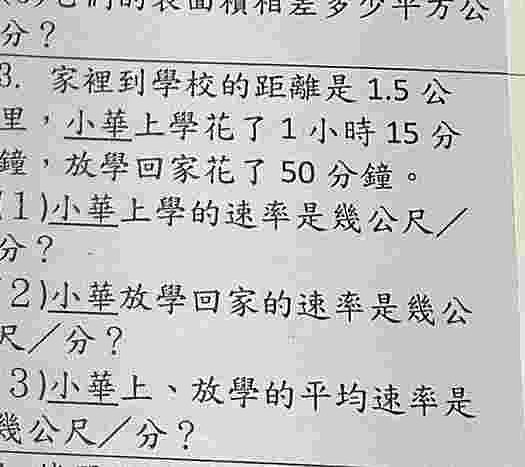 它們的表面積相差多少平方公
分？
3. 家裡到學校的距離是 1.5 公
里，小華上學花了 1 小時 15 分
鐘，放學回家花了 50 分鐘。
(1)小華上學的速率是幾公尺／
分？
(2)小華放學回家的速率是幾公
尺／分？
(3)小華上、放學的平均速率是
幾公尺／分？